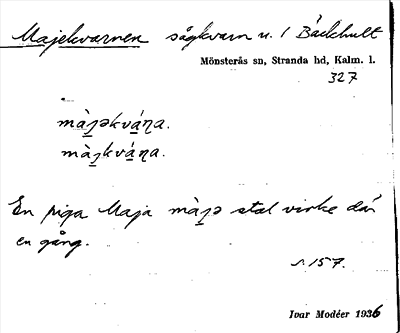 Majekvarnen sågkvarn u. / Bäckhult
Mönsterås sn, Stranda hd, Kalm. l.
327
màjəkváɳa.
màjkváɳa.
En piga Maja màjə stal virke där
en gång.
s. 157.
Ivar Modéer 1936